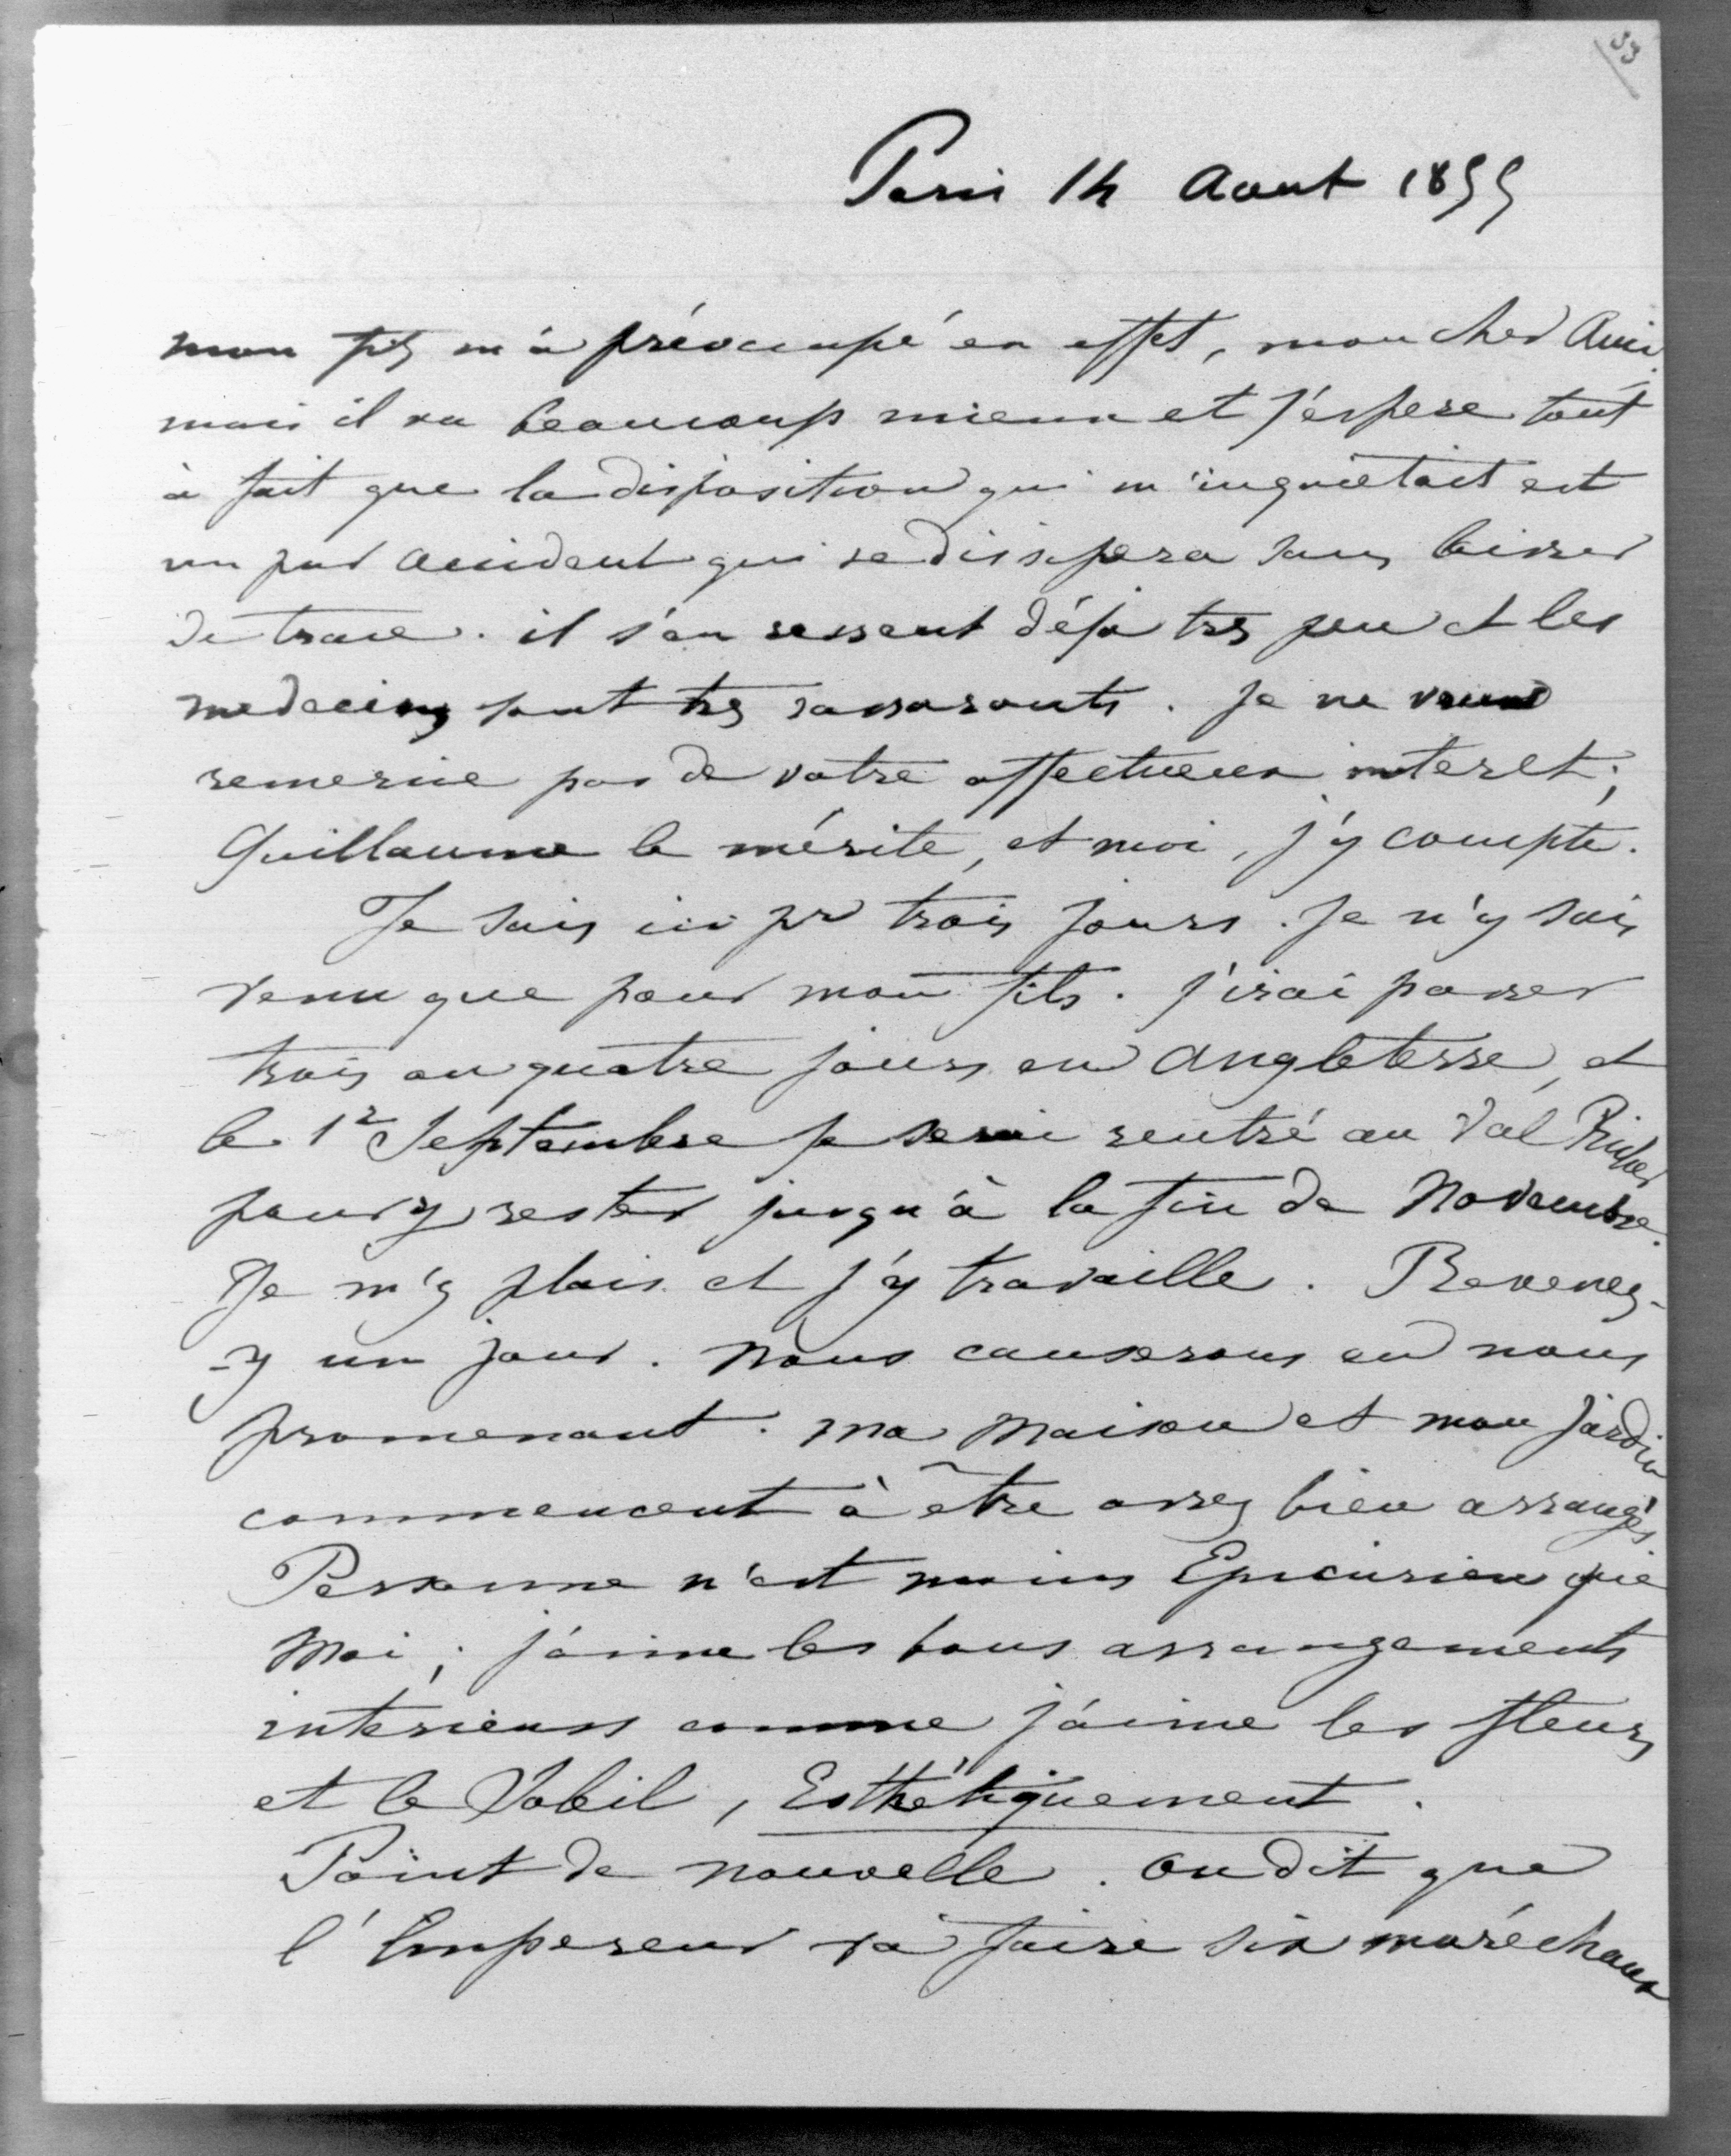 33
Paris 14 Aout 1855
mon fils m'a préoccupé en effet, mon cher Ami,
mais il va beaucoup mieux et j'espere tout
à fait que la disposition qui m'inquiétait est
un pur accident qui se dissipera sans laisser
de trace. il s'en ressent déjà très peu et les
medecins sont très rassurants. Je ne vous
remercie pas de votre affectueux interet;
Guillaume le mérite, et moi, j'y compte.
Je suis ici pr trois jours. Je n'y suis
venu que pour mon fils. j'irai passer
trois ou quatre jours en Angleterre, et
le 1r Septembre je serai rentré au Val Richer
pour y rester jusqu'à la fin de Novembre.
Je m'y plais et j'y travaille. Revenez-
-y un jour. Nous causerons en nous
promenant. Ma Maison et mon jardin
commencent à être assez bien arrangés
Personne n'est moins Epicurien que
Moi; j'aime les bons arrangements
interieurs comme j'aime les fleurs
et le Soleil, Esthétiquement.
Point de nouvelle. on dit que
l'Empereur va faire six maréchaux